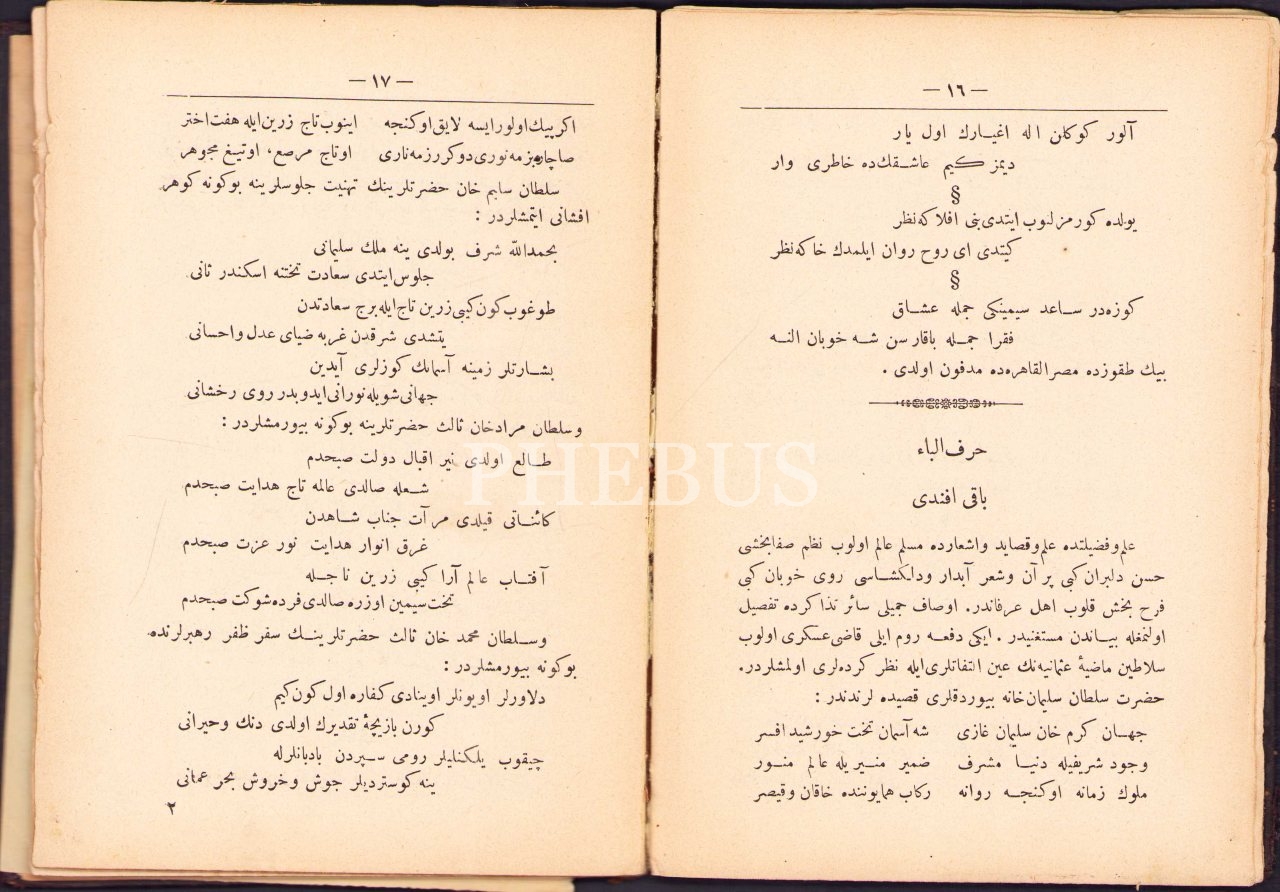 — ١٦ —
آلور کوکلن اله اغیارك اول یار
دیمز کیم عاشقك‌ده خاطری وار
§
یولده کورمزلنوب ایتدی بنی افلاکه نظر
کیتدی ای روح روان ایلمدك خاکه نظر
§
کوزه‌در ساعد سیمینکی جمله عشاق
فقرا جمله باقارسن شه خوبان النه
بیك طقوزده مصرالقاهره‌ده مدفون اولدی .
حرف الباء
باقی افندی
علم وفضیلتده علم وقصاید واشعارده مسلم عالم اولوب نظم صفابخشی
حسن دلبران کبی پر آن وشعر آبدار ودلکشاسی روی خوبان کبی
فرح بخش قلوب اهل عرفاندر. اوصاف جمیلی سائر تذاکرده تفصیل
اولنمغله بیاندن مستغنیدر . ایکی دفعه روم ایلی قاضی عسکری اولوب
سلاطین ماضیهٔ عثمانیه‌نك عین التفاتلری‌ایله نظر کرده‌لری اولمشلردر.
حضرت سلطان سلیمان‌خانه بیوردقلری قصیده لرندندر :
جهان کرم خان سلیمان غازی شه آسمان تخت خورشید افسر
وجود شریفیله دنیا مشرف ضمیر منیریله عالم منور
ملوك زمانه اوکنجه روانه رکاب همایوننده خاقان وقیصر
— ١٧ —
اکر پیك اولورایسه لایق اوکنجه اینوب تاج زرین ایله هفت اختر
صاچار بزمه نوری دوکر رزمه ناری او تاج مرصع، او تیغ مجوهر
سلطان سلیم خان حضرتلرینك تهنیت جلوسلرینه بوکونه کوهر
افشانی ایتمشلردر :
بحمدالله شرف بولدی ینه ملك سلیمانی
جلوس ایتدی سعادت تختنه اسکندر ثانی
طوغوب کون کیبی زرین تاج ایله برج سعادتدن
یتشدی شرقدن غربه ضیای عدل واحسانی
بشارتلر زمینه آسمانك کوزلری آیدین
جهانی شویله نورانی ایدوبدر روی رخشانی
وسلطان مرادخان ثالث حضرتلرینه بوکونه بیورمشلردر :
طالع اولدی نیر اقبال دولت صبحدم
شعله صالدی عالمه تاج هدایت صبحدم
کائناتی قیلدی مرآت جناب شاهدن
غرق انوار هدایت نور عزت صبحدم
آفتاب عالم آرا کیبی زرین تاجله
تخت سیمین اوزره صالدی فرده شوکت صبحدم
وسلطان محمد خان ثالث حضرتلرینك سفر ظفر رهبرلرنده
بوکونه بیورمشلردر :
دلاورلر اویونلر اوینادی کفاره اول کون کیم
کورن بازیچهٔ تقدیرك اولدی دنك وحیرانی
چیقوب یلکنلیلر رومی سپردن بادبانلرله
ینه کوستردیلر جوش وخروش بحر عمانی
٢
PHEBUS